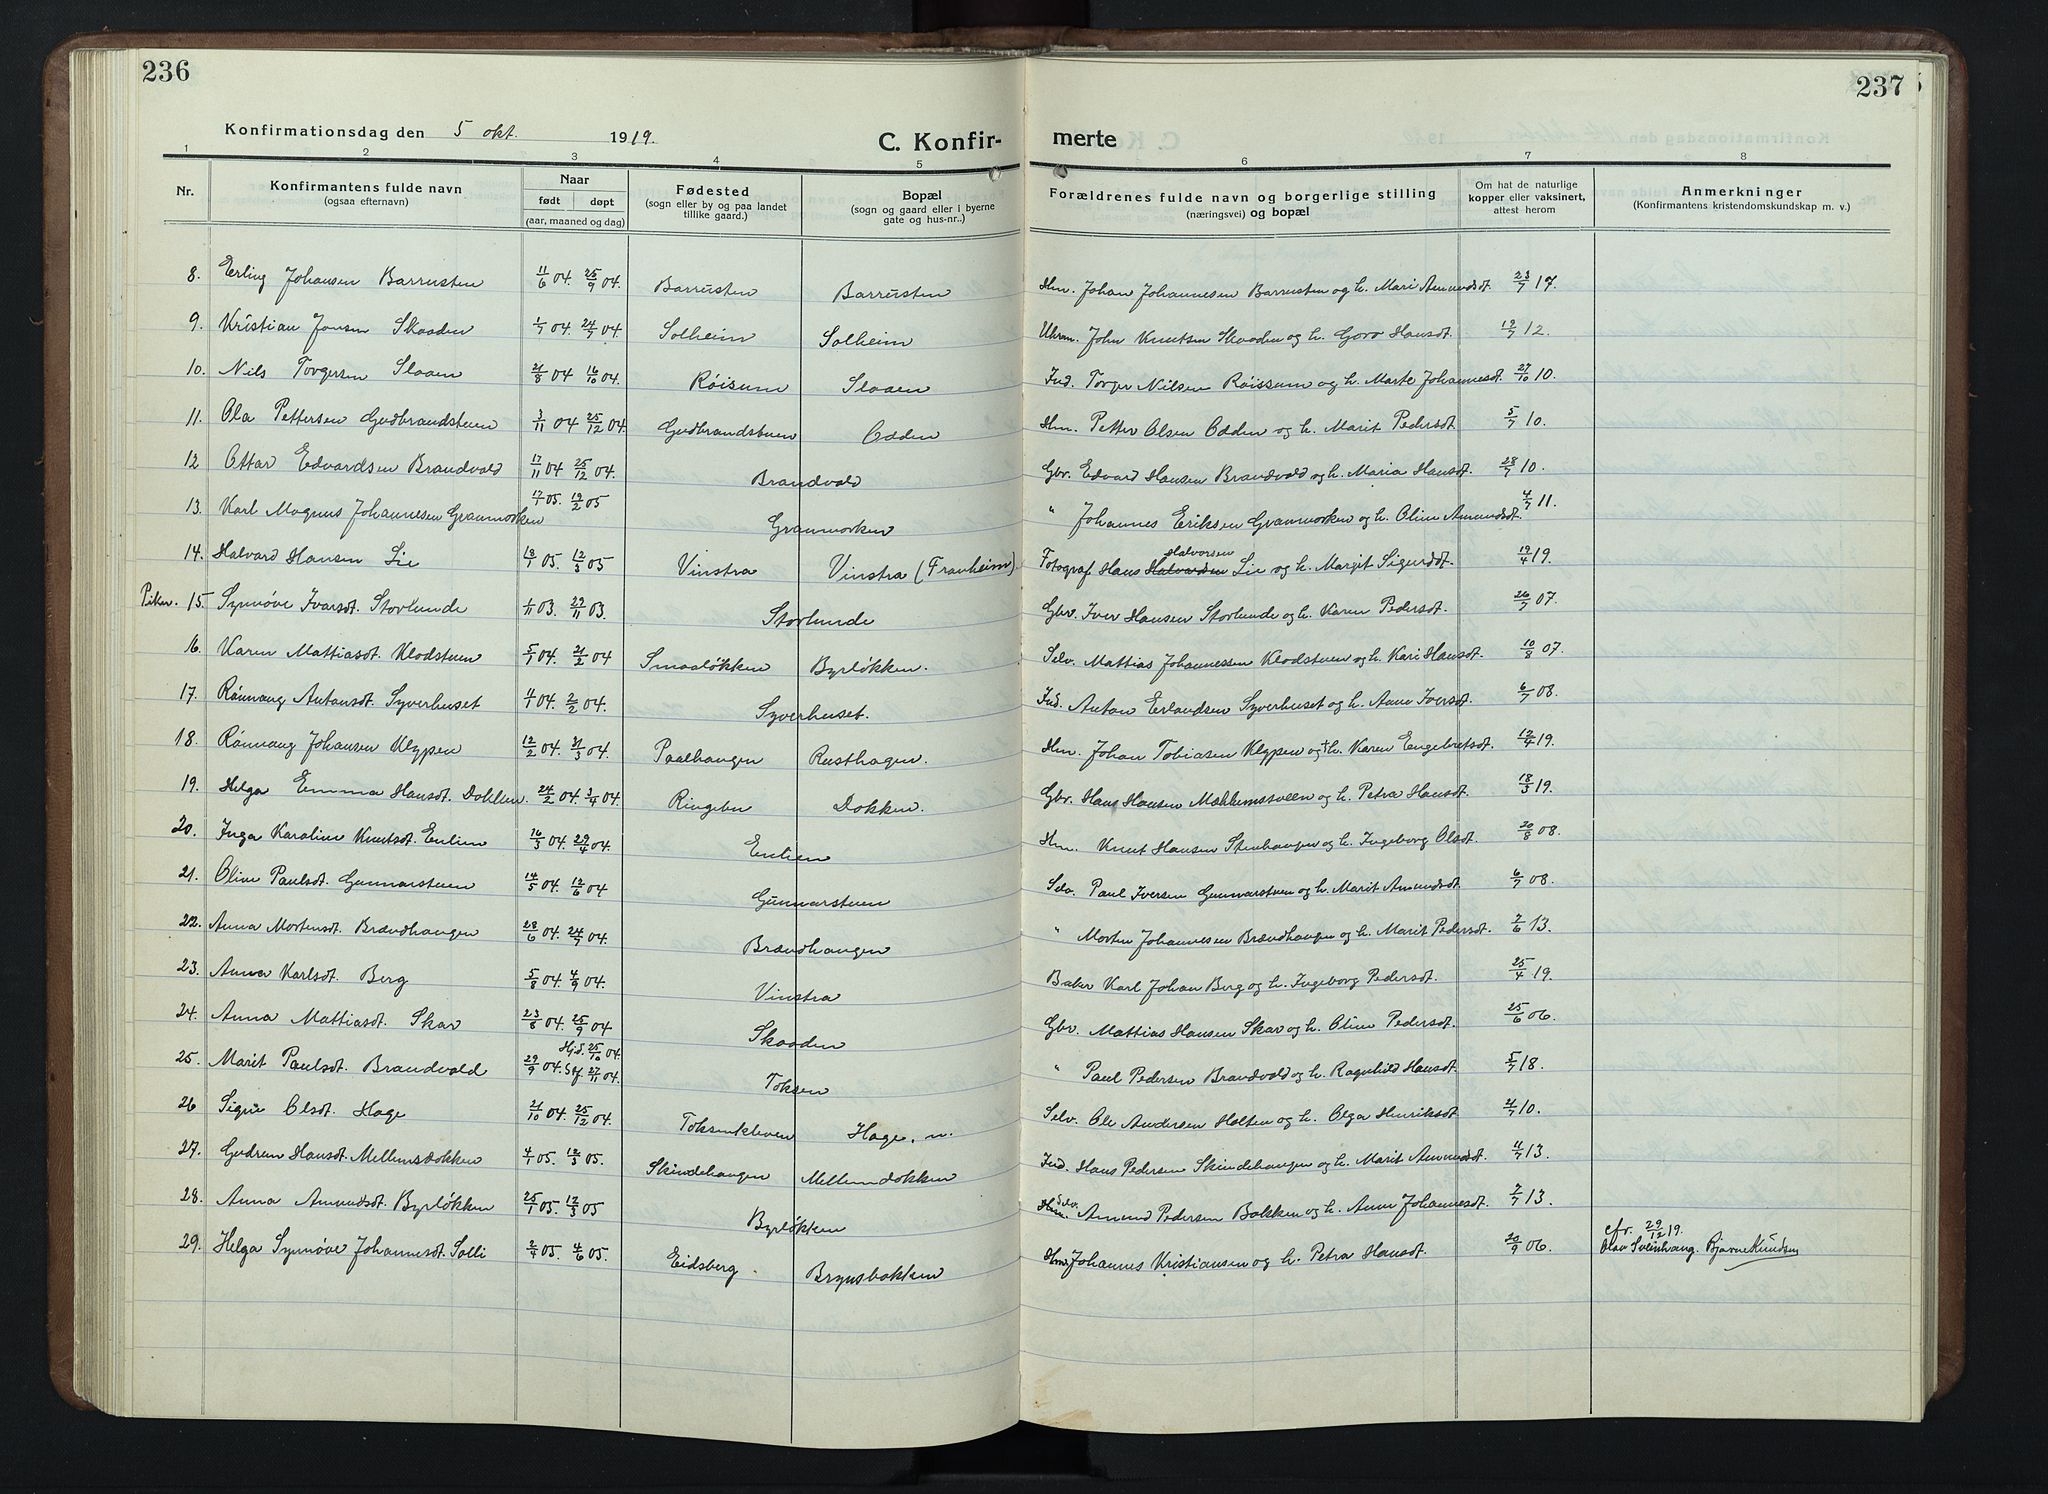 236
237
Konfirmationsdag den 5 okt. 1919.
C. Konfir-
merte
1 2 3 4 5 6 7 8
Nr.
Konfirmantens fulde navn
(ogsaa efternavn)
Naar
født døpt
(aar, maaned og dag)
Fødested
(sogn eller by og paa landet
tillike gaard.)
Bopæl
(sogn og gaard eller i byerne
gate og hus-nr..)
Forældrenes fulde navn og borgerlige stilling
(næringsvei) og bopæl
Om hat de naturlige
kopper eller vaksinert,
attest herom
Anmerkninger
(Konfirmantens kristendomskundskap m. v.)
8. Erling Johansen Barrusten 11/6 04. 25/9 04. Barrusten Barrusten Hm. Johan Johannesen Barrusten og h. Mari Amundsdt. 23/7 17.
9. Kristian Jonsen Skaaden 1/7 04. 24/7 04. Solheim Solheim John Knutsen Skaaden og h. Goro Hansdt. 19/7 12.
10. Nils Torgersen Slaaen 21/8 04 16/10 04. Røisum Slaaen Ind. Torger Nilsen Røissum og h. Marte Johannesdt. 27/10 10.
11. Ola Pettersen Gudbrandstuen 3/11 04 25/12 04. Gudbrandstuen Odden Hm. Petter Olsen Odden og h. Marit Pedersdt. 5/7 10.
12 Ottar Edvardsen Brandvold 17/11 04 25/12 04. Brandvold Gbr. Edvard Hansen Brandvold og h. Maria Hansdt. 28/7 10.
13. Karl Magnus Johannesen Granmorken 17/1 05. 19/2 05 Granmorken " Johannes Eriksen Granmorken og h. Oline Amundsdt. 4/7 11.
14. Halvard Hansen Lie 19/1 05. 12/3 05 Vinstra Vinstra (Framheim) Fotograf Hans Halvarden Halvorsen Lie og h. Margit Sigurdsdt. 19/4 19.
Piker. 15. Synnøve Ivarsdt. Storlunde 1/11 03. 29/11 03. Storlunde Gbr. Iver Hansen Storlunde og h. Karen Pedersdt. 26/7 07.
16. Karen Mattiasdt. Klodstuen 5/1 04. 21/2 04 Smaaløkken Byrløkken. Selv. Mattias Johannessen Klodstuen og h. Kari Hansdt. 10/8 07.
17. Rønnaug Antonsdt. Syverhuset 4/1 04. 2/2 04. Syverhuset. Ind. Anton Erlandsen Syverhuset og h. Anne Iversdt. 6/7 08.
18. Rønnaug Johansen Klypen 12/2 04. 31/3 04. Paalhaugen Rusthagen. Hm. Johan Tobiasen Klypen og † h. Karen Engebretsdt. 12/4 19.
19. Helga Emma Hansdt. Dokken. 24/2 04. 3/4 04. Ringebu Dokken. Gbr. Hans Hansen Mæhlumssveen og h. Petra Hansdt. 18/3 19.
20. Inga Karoline Knutsdt. Enlien 16/3 04. 29/4 04. Enlien Hm. Knut Hansen Stenhaugen og h. Ingeborg Olsdt. 20/8 08.
21. Oline Paulsdt. Gunnarstuen 14/5 04. 12/6 04 Gunnarstuen Selv. Paul Iversen Gunnarstuen og h. Marit Amundsdt. 6/7 08.
22. Anna Mortensdt. Brændhaugen 28/6 04. 24/7 04. Brændhaugen " Morten Johannesen Brændhaugen og h. Marit Pedersdt. 7/6 13.
23. Anna Karlsdt. Berg 5/8 04. 4/9 04. Vinstra Baker Karl Johan Berg og h. Ingeborg Pedersdt. 25/4 19.
24. Anna Mattiasdt. Skar 23/8 04. 25/9 04 Skaaden Gbr. Mattias Hansen Skar og h. Oline Pedersdt. 25/6 06.
25. Marit Paulsdt. Brandvold 29/9 04. Hjd. 25/10 04. Stf. 27/11 04. Toksen " Paul Pedersen Brandvold og h. Ragnhild Hansdt. 5/7 18.
26 Signe Olsdt. Hage 21/10 04. 25/12 04. Toksenkleven Hage, n. Selv. Ole Andersen Holten og h. Olga Henriksdt. 4/7 10.
27. Gudrun Hansdt. Mellemsdokken 4/1 05. 12/3 05. Skindehaugen Mellemdokken Ind. Hans Pedersen Skindehaugen og h. Marit Amundsdt. 11/7 13.
28. Anna Amundsdt. Byrløkken 25/1 05. 12/3 05 Byrløkken Hm. Selv. Amund Pedersen Bakken og h. Anne Johannesdt. 7/7 13.
29. Helga Synnøve Johannesdt. Solli 2/4 05. 4/6 05. Eidsberg Brynsbakken Hm. Johannes Kristiansen og h. Petra Hansdt. 20/9 06. cfr. 29/12 19.
Olav Sveinhaug. Bjarne Knudsen